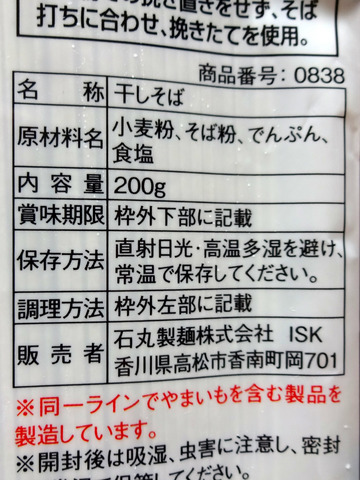 の挽き置きをせず、そば
打ちに合わせ、挽きたてを使用。
商品番号：0838
名称 干しそば
原材料名 小麦粉、そば粉、でんぷん、
食塩
内容量 200g
賞味期限 枠外下部に記載
保存方法 直射日光・高温多湿を避け、
常温で保存してください。
調理方法 枠外左部に記載
販売者 石丸製麺株式会社 ISK
香川県高松市香南町岡701
※同一ラインでやまいもを含む製品を
製造しています。
※開封後は吸湿、虫害に注意し、密封
で保管してください。